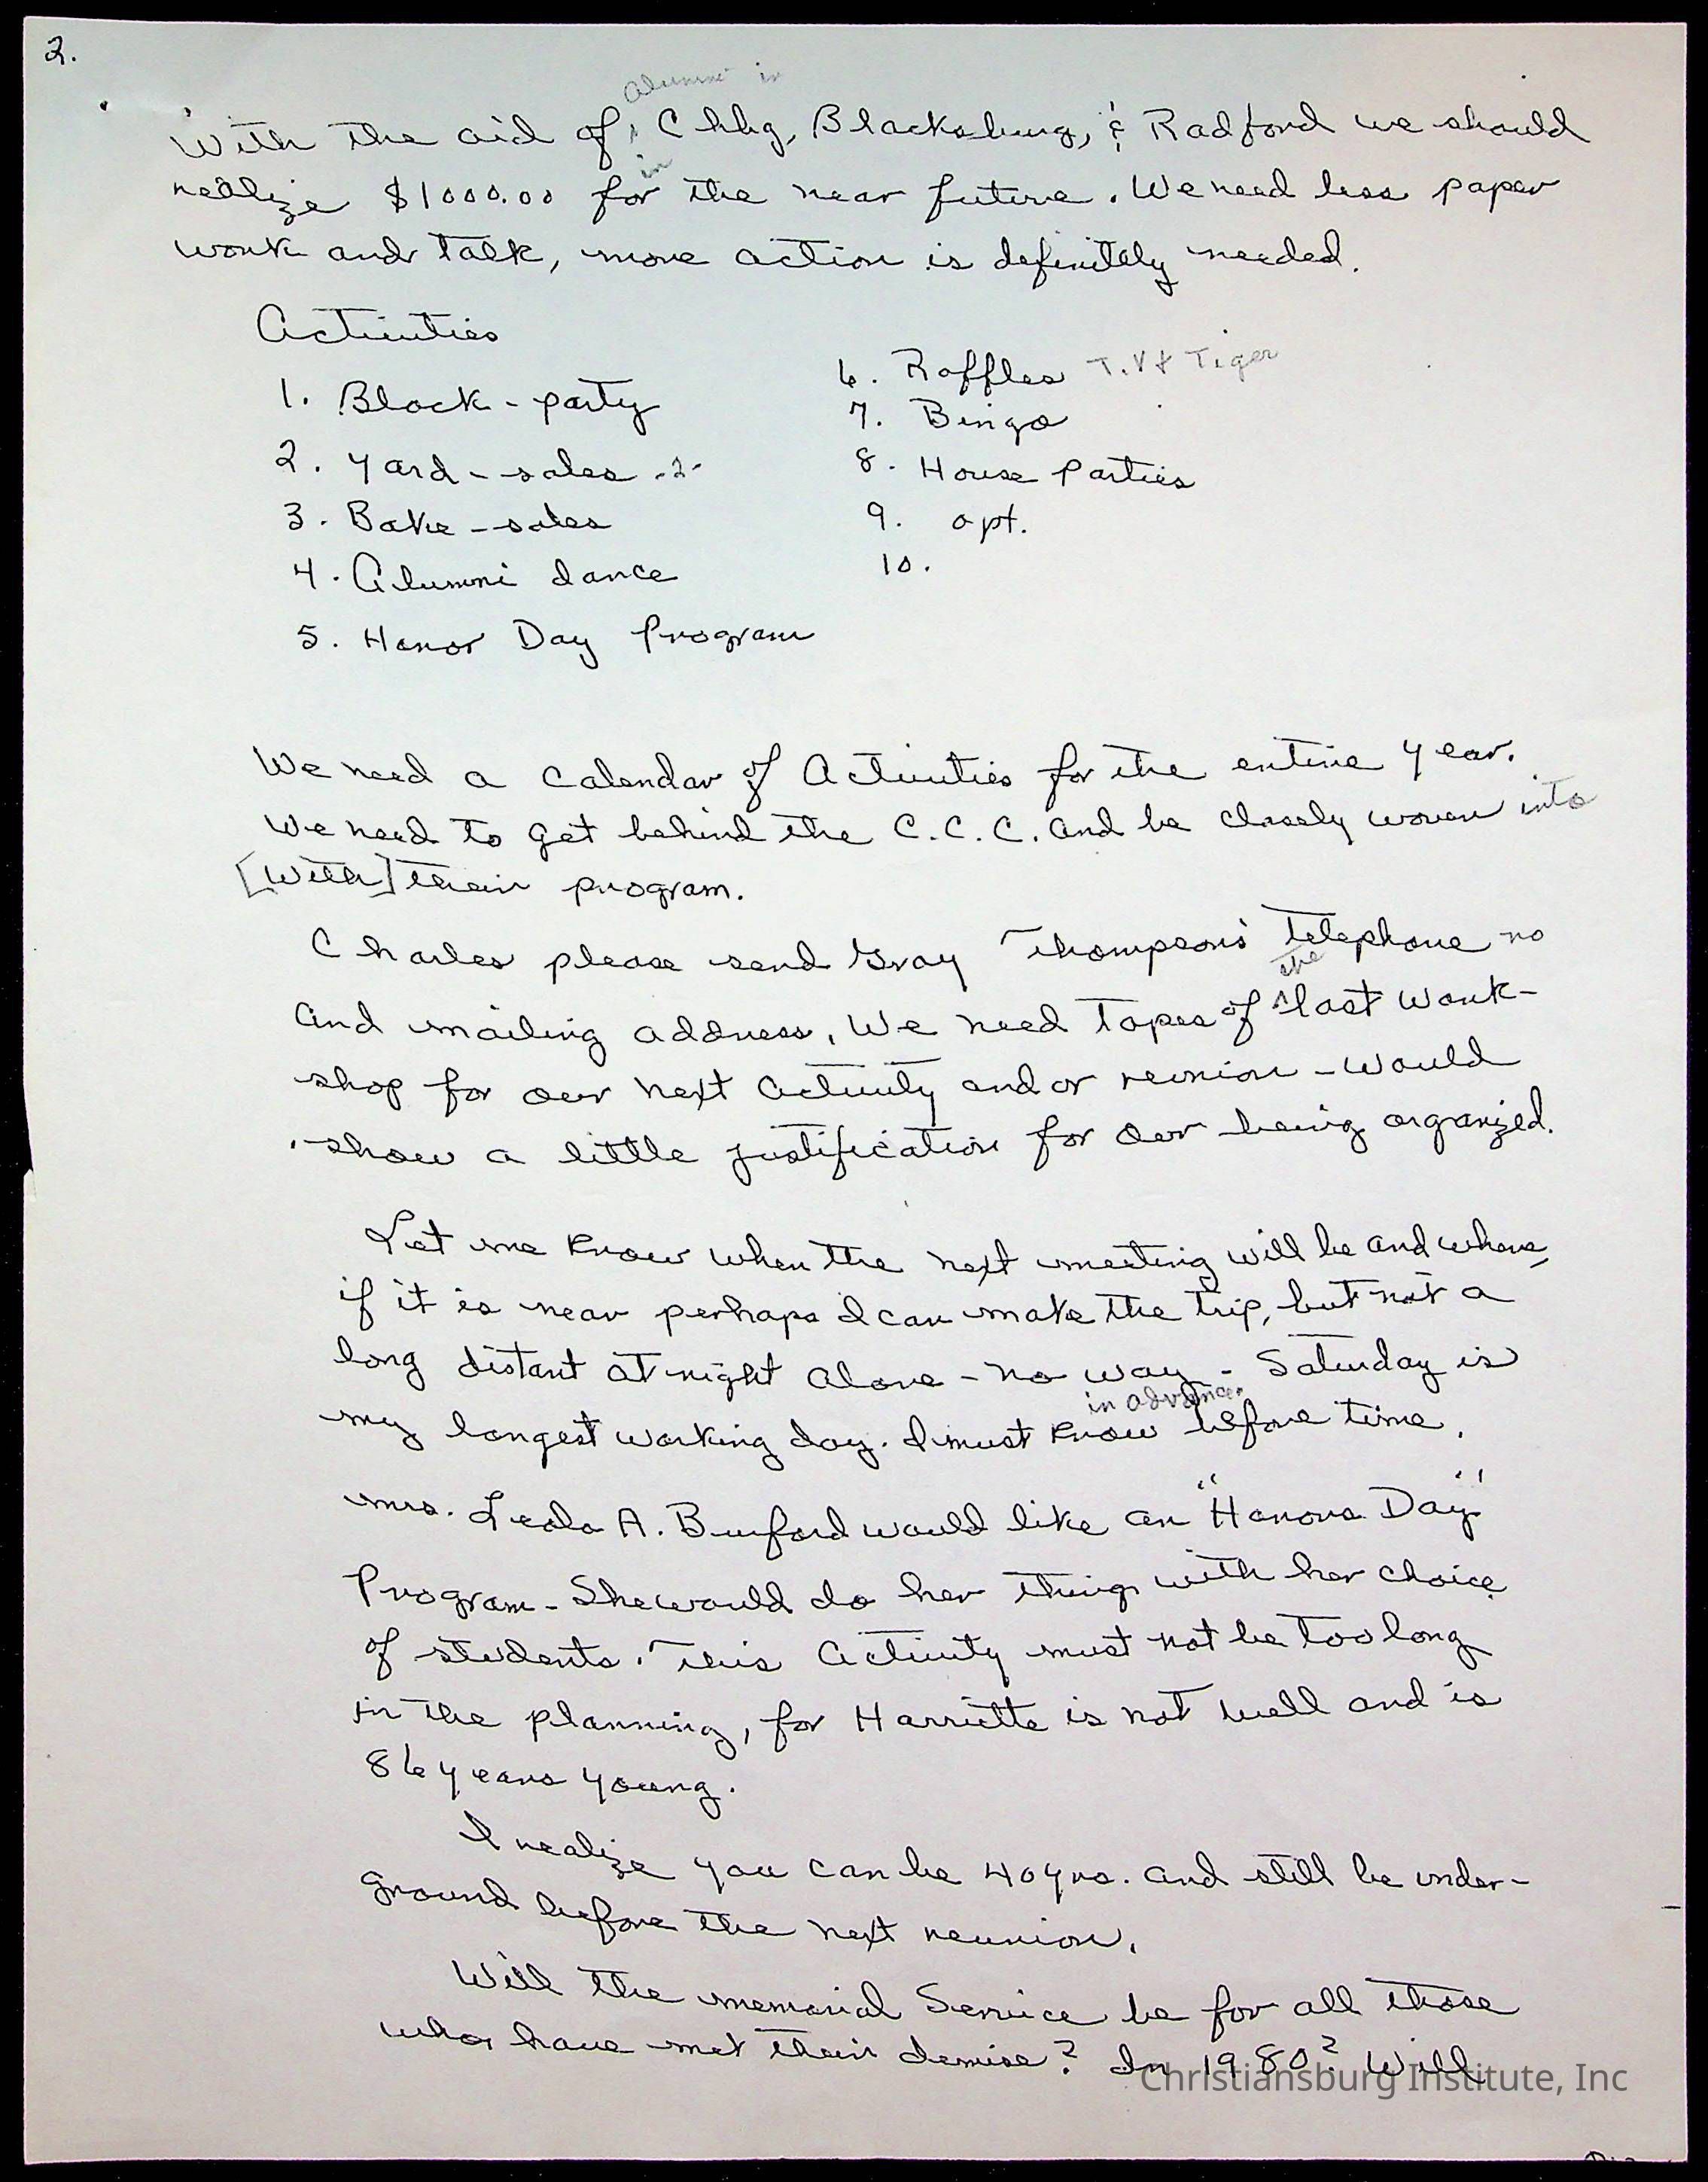 2.
alumni in
With the aid of, Chbg, Blacksburg, & Radford we should
in
realize $1000.00 for the near future. We need less paper
work and talk, more action is definitely needed.
Activities
1. Block-party
2. Yard-sales -2-
3. Bake-sales
4. Alumni dance
5. Honor Day Program
6. Raffles T.V & Tiger
7. Bingo
8. House Parties
9. opt.
10.
We need a Calendar of Activities for the entire year.
We need to get behind the C.C.C. and be closely woven into
[with] their program.
Charles please send Gray Thompson's telephone no
the
and mailing address. We need Tapes of ^ last work-
shop for our next activity and or reunion - would
show a little justification for our being organized.
Let me know when the next meeting will be and where,
if it is near perhaps I can make the trip, but not a
long distant at night alone - no way - Saturday is
in advance.
my longest working day. I must know before time.
Mrs. Leola A. Burford would like an "Honors Day"
Program - She would do her thing with her choice
of students. This activity must not be too long
in the planning, for Harriette is not well and is
86 years young.
I realize you can be 40 yrs. and still be under-
ground before the next reunion.
Will the memorial Service be for all those
who have met their demise? In 1980? Will
Christiansburg Institute, Inc